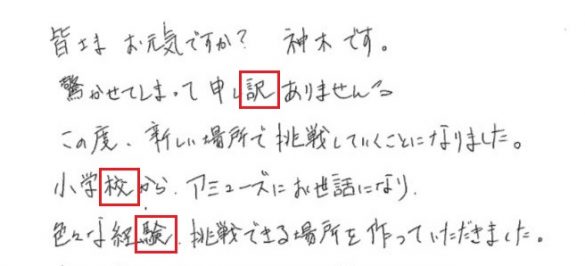 皆さま お元気ですか? 神木です。
驚かせてしまって申し訳ありません
この度、新しい場所で挑戦していくことになりました。
小学校から、アミューズにお世話になり、
色々な経験、挑戦できる場所を作っていただきました。